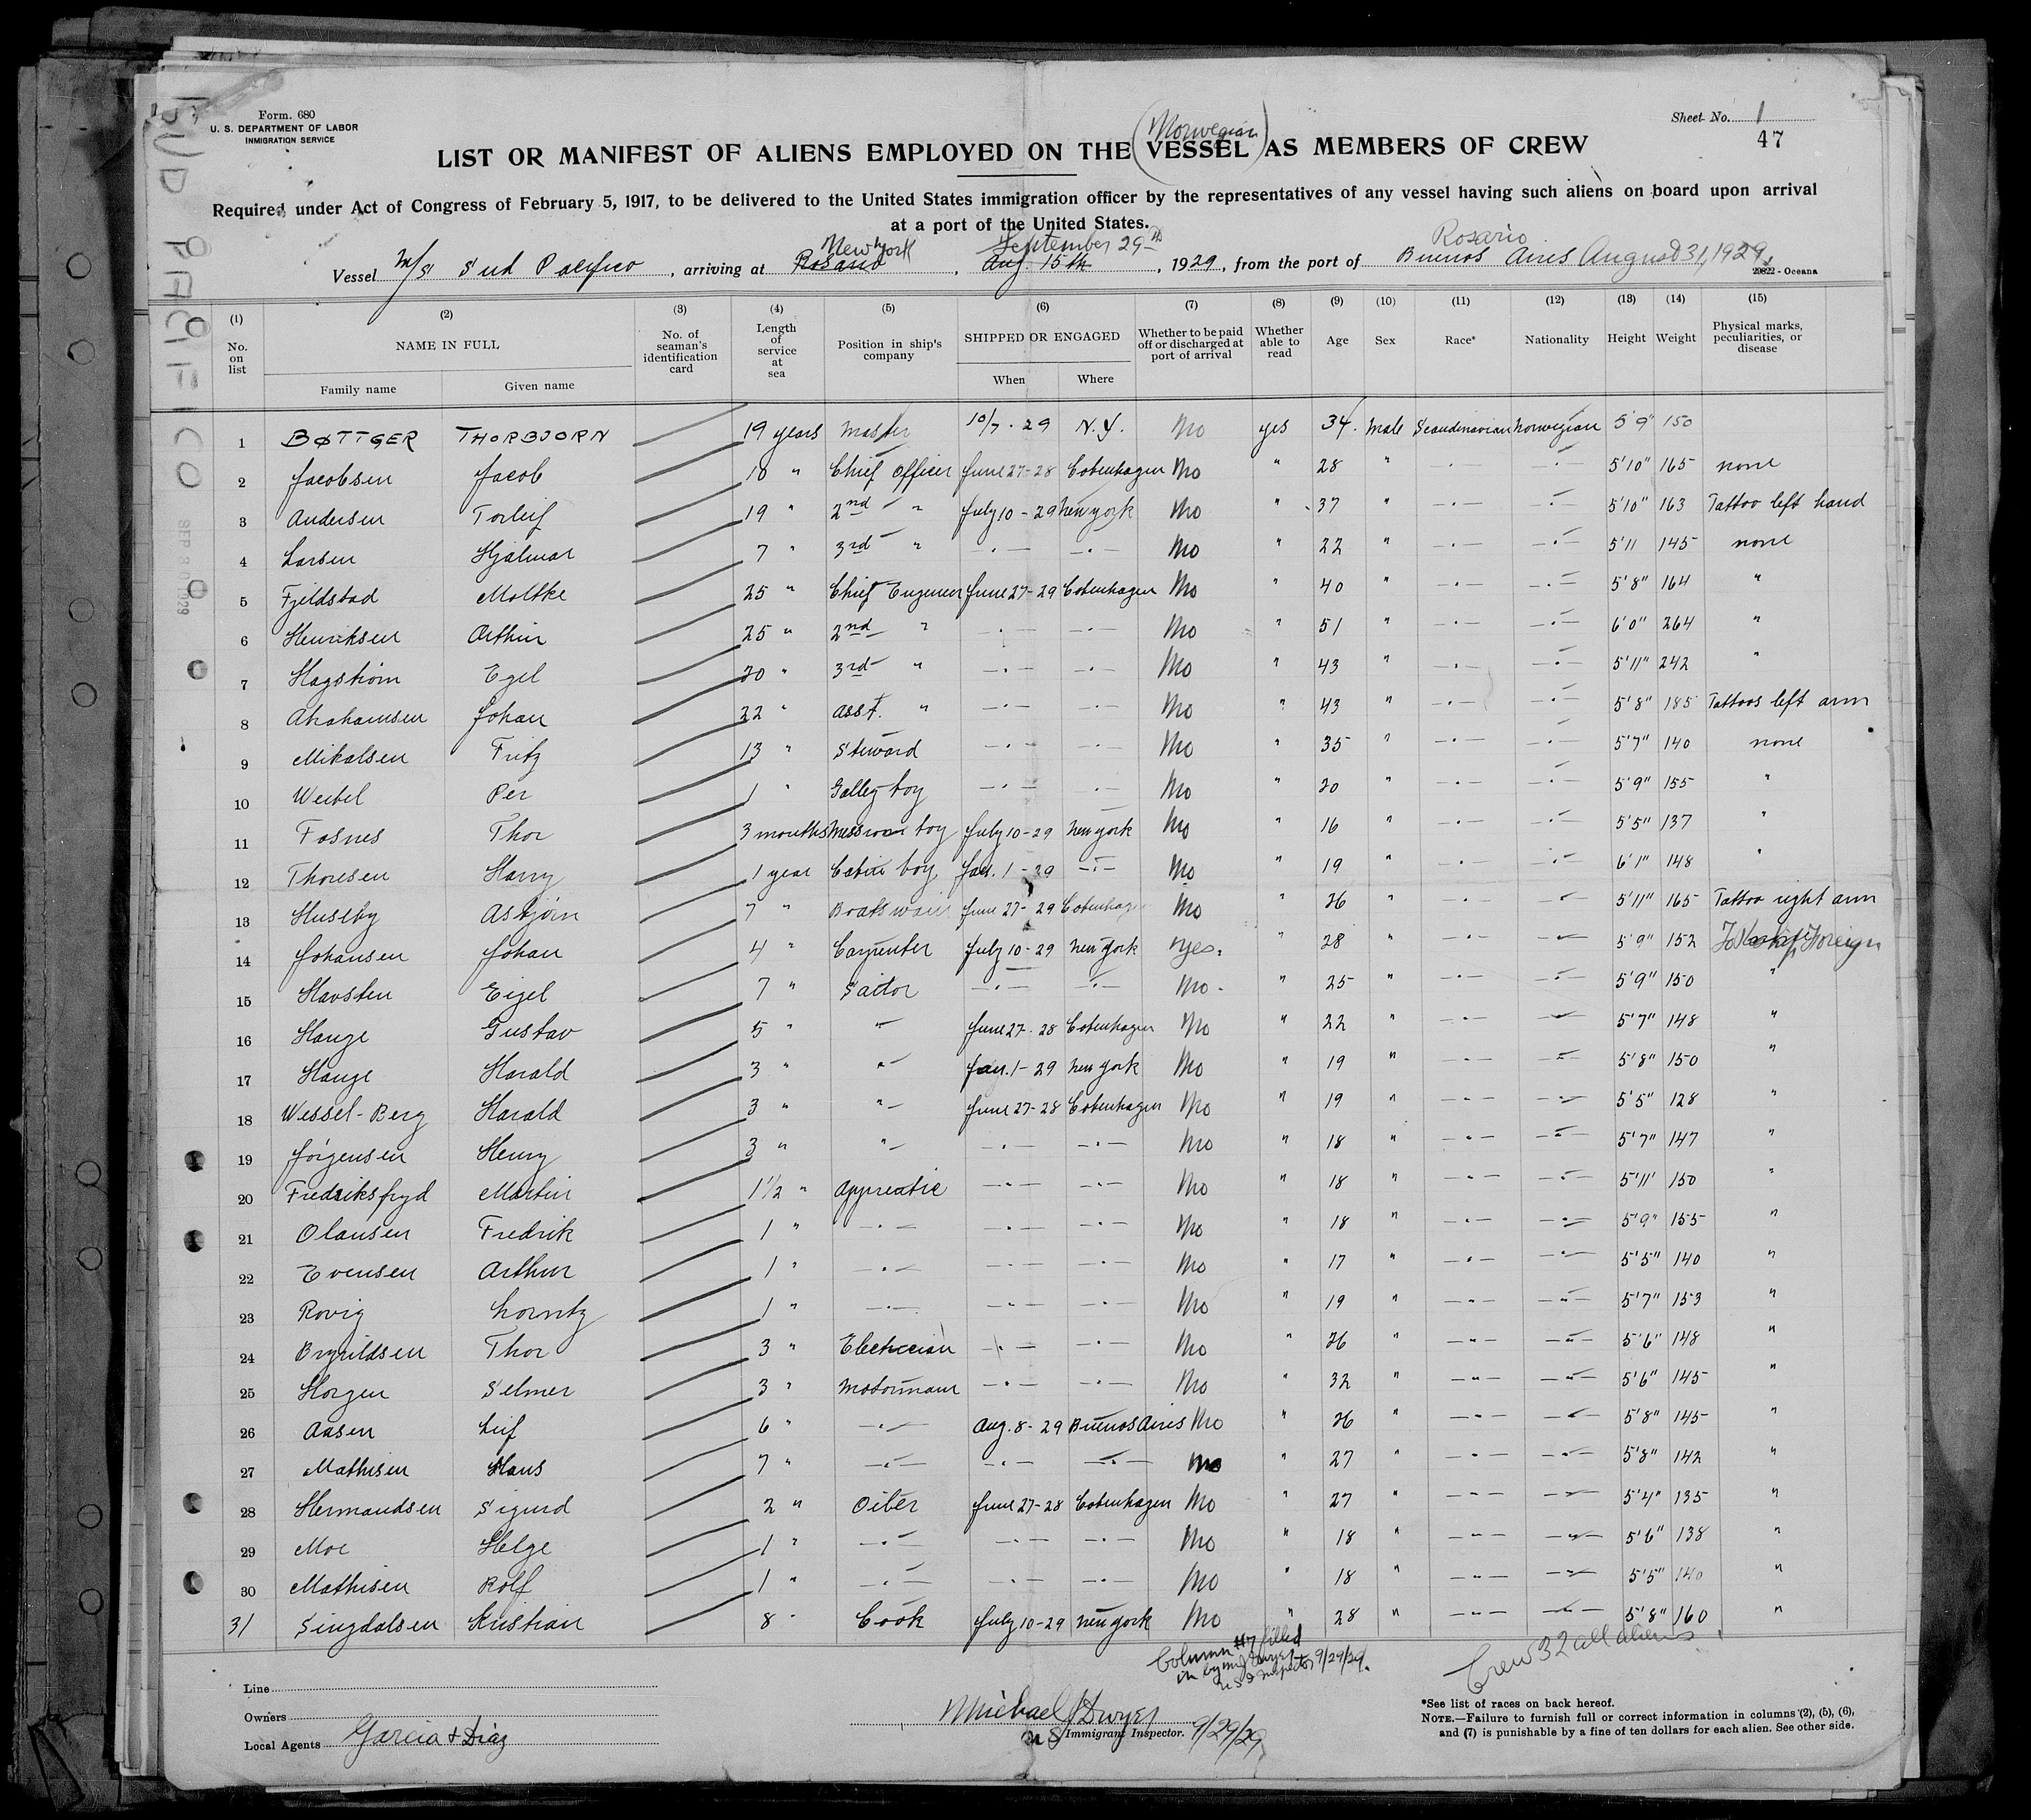 Form. 680
U. S. DEPARTMENT OF LABOR
IMMIGRATION SERVICE
Sheet No. 1
47
(Norwegian)
LIST OR MANIFEST OF ALIENS EMPLOYED ON THE VESSEL AS MEMBERS OF CREW
Required under Act of Congress of February 5, 1917, to be delivered to the United States immigration officer by the representatives of any vessel having such aliens on board upon arrival
at a port of the United States.
New York September 29th Rosario
Vessel M/S Sud Pacifico, arriving at Rosario, Aug. 15th, 1929, from the port of Buenos Aires August 31, 1929
29822 - Oceana
SUD PACIFICO
SEP 3 1929
(1) (2) (3) (4) (5) (6) (7) (8) (9) (10) (11) (12) (13) (14) (15)
No. on list NAME IN FULL No. of seaman's identification card Length of service at sea Position in ship's company SHIPPED OR ENGAGED Whether to be paid off or discharged at port of arrival Whether able to read Age Sex Race* Nationality Height Weight Physical marks, peculiarities, or disease
Family name Given name When Where
1 BØTTGER THORBJORN 19 years Master 10/7 - 29 N.Y. No yes 34 Male Scandinavian Norwegian 5'9" 150
2 Jacobsen Jacob 18 " Chief Officer June 27-28 Cobenhagen No " 28 " -.- -.- 5'10" 165 none
3 Andersen Torleif 19 " 2nd " July 10-29 New York No " 37 " -.- -.- 5'10" 163 Tattoo left hand
4 Larsen Hjalmar 7 " 3rd " -.- -.- No " 22 " -.- -.- 5'11 145 none
5 Fjeldstad Moltke 25 " Chief Engineer June 27-29 Cobenhagen No " 40 " -.- -.- 5'8" 164 "
6 Henriksen Arthur 25 " 2nd " -.- -.- No " 51 " -.- -.- 6'0" 264 "
7 Hagstrøm Egel 20 " 3rd " -.- -.- No " 43 " -.- -.- 5'11" 242 "
8 Abrahamsen Johan 22 " asst. " -.- -.- No " 43 " -.- -.- 5'8" 185 Tattoos left arm
9 Mikalsen Fritz 13 " Steward -.- -.- No " 35 " -.- -.- 5'7" 140 none
10 Weibel Per 1 " Galley boy -.- -.- No " 20 " -.- -.- 5'9" 155 "
11 Fosnes Thor 3 months Messroom boy July 10-29 New York No " 16 " -.- -.- 5'5" 137 "
12 Thoresen Harry 1 year Cabin boy Jan. 1-29 -.- No " 19 " -.- -.- 6'1" 148 "
13 Huseby Asbjørn 7 " Boatswain June 27-29 Cobenhagen No " 26 " -.- -.- 5'11" 165 Tattoo right arm
14 Johansen Johan 4 " Carpenter July 10-29 New York Yes. " 28 " -.- -.- 5'9" 152 Foreign
15 Havsten Eigel 7 " Sailor -.- -.- No " 25 " -.- -.- 5'9" 150 "
16 Hauge Gustav 5 " " June 27-28 Cobenhagen No " 22 " -.- -.- 5'7" 148 "
17 Hauge Harald 3 " " Jan. 1-29 New York No " 19 " -.- -.- 5'8" 150 "
18 Wessel-Berg Harald 3 " " June 27-28 Cobenhagen No " 19 " -.- -.- 5'5" 128 "
19 Jørgensen Henry 3 " " -.- -.- No " 18 " -.- -.- 5'7" 147 "
20 Fredriksfryd Martin 1½ " Apprentice -.- -.- No " 18 " -.- -.- 5'11" 150 "
21 Olausen Fredrik 1 " -.- -.- -.- No " 18 " -.- -.- 5'9" 155 "
22 Evensen Arthur 1 " -.- -.- -.- No " 17 " -.- -.- 5'5" 140 "
23 Rovig Lorentz 1 " -.- -.- -.- No " 19 " -.- -.- 5'7" 153 "
24 Brynildsen Thor 3 " Electrician -.- -.- No " 26 " -.- -.- 5'6" 148 "
25 Horgen Selmer 3 " Motorman -.- -.- No " 32 " -.- -.- 5'6" 145 "
26 Aasen Leif 6 " -.- Aug. 8-29 Buenos Aires No " 26 " -.- -.- 5'8" 145 "
27 Mathisen Hans 7 " -.- -.- -.- No " 27 " -.- -.- 5'8" 142 "
28 Hermandsen Sigurd 2 " Oiler June 27-28 Cobenhagen No " 27 " -.- -.- 5'4" 135 "
29 Moe Helge 1 " -.- -.- -.- No " 18 " -.- -.- 5'6" 138 "
30 Mathisen Rolf 1 " -.- -.- -.- No " 18 " -.- -.- 5'5" 140 "
31 Singdalsen Kristian 8 " Cook July 10-29 New York No " 28 " -.- -.- 5'8" 160 "
Column #7 filled
in by me Dwyer
U S Inspector 9/29/29.
Crew 32 all aliens
Line
Owners
Local Agents Garcia & Diaz
Michael J Dwyer
U S Immigrant Inspector. 9/29/29
*See list of races on back hereof.
NOTE.—Failure to furnish full or correct information in columns (2), (5), (6),
and (7) is punishable by a fine of ten dollars for each alien. See other side.